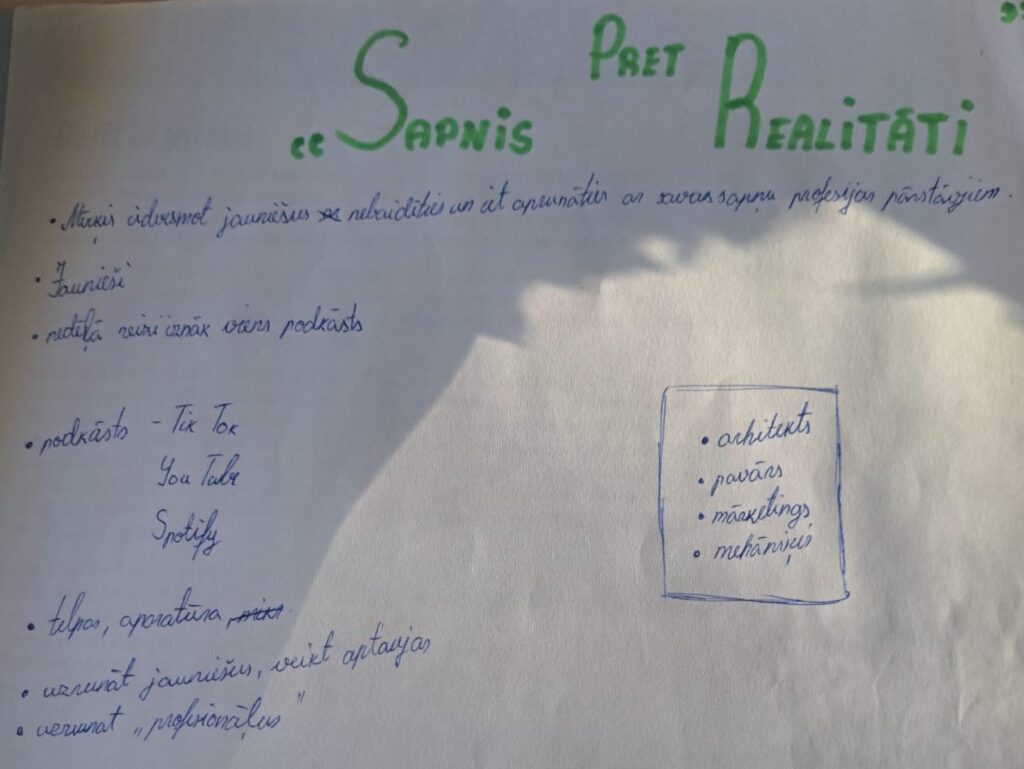 „Sapnis Pret Realitāti”
• Mērķis iedvesmot jauniešus nebaidīties un iet aprunāties ar savas sapņu profesijas pārstāvjiem.
• Jaunieši
• nedēļā reizi iznāk viens podkāsts
• podkāsts - Tik Tok
You Tube
Spotify
• arhitekts
• pavārs
• mārketings
• mehāniķis
• telpas, aparatūra,
• uzrunāt jauniešus, veikt aptaujas
• uzrunat „profesionāļus”